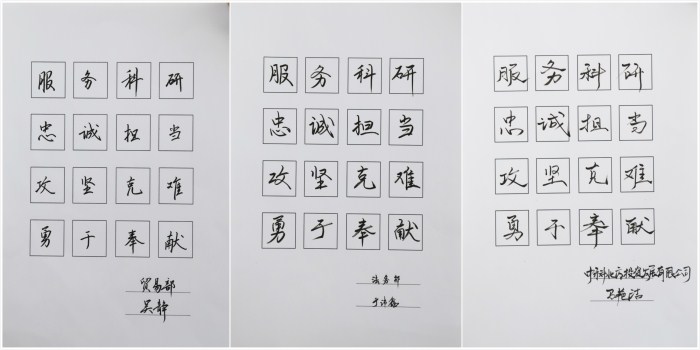 服务科研
忠诚担当
攻坚克难
勇于奉献
贸易部
吴静
服务科研
忠诚担当
攻坚克难
勇于奉献
法务部
服务科研
忠诚担当
攻坚克难
勇于奉献